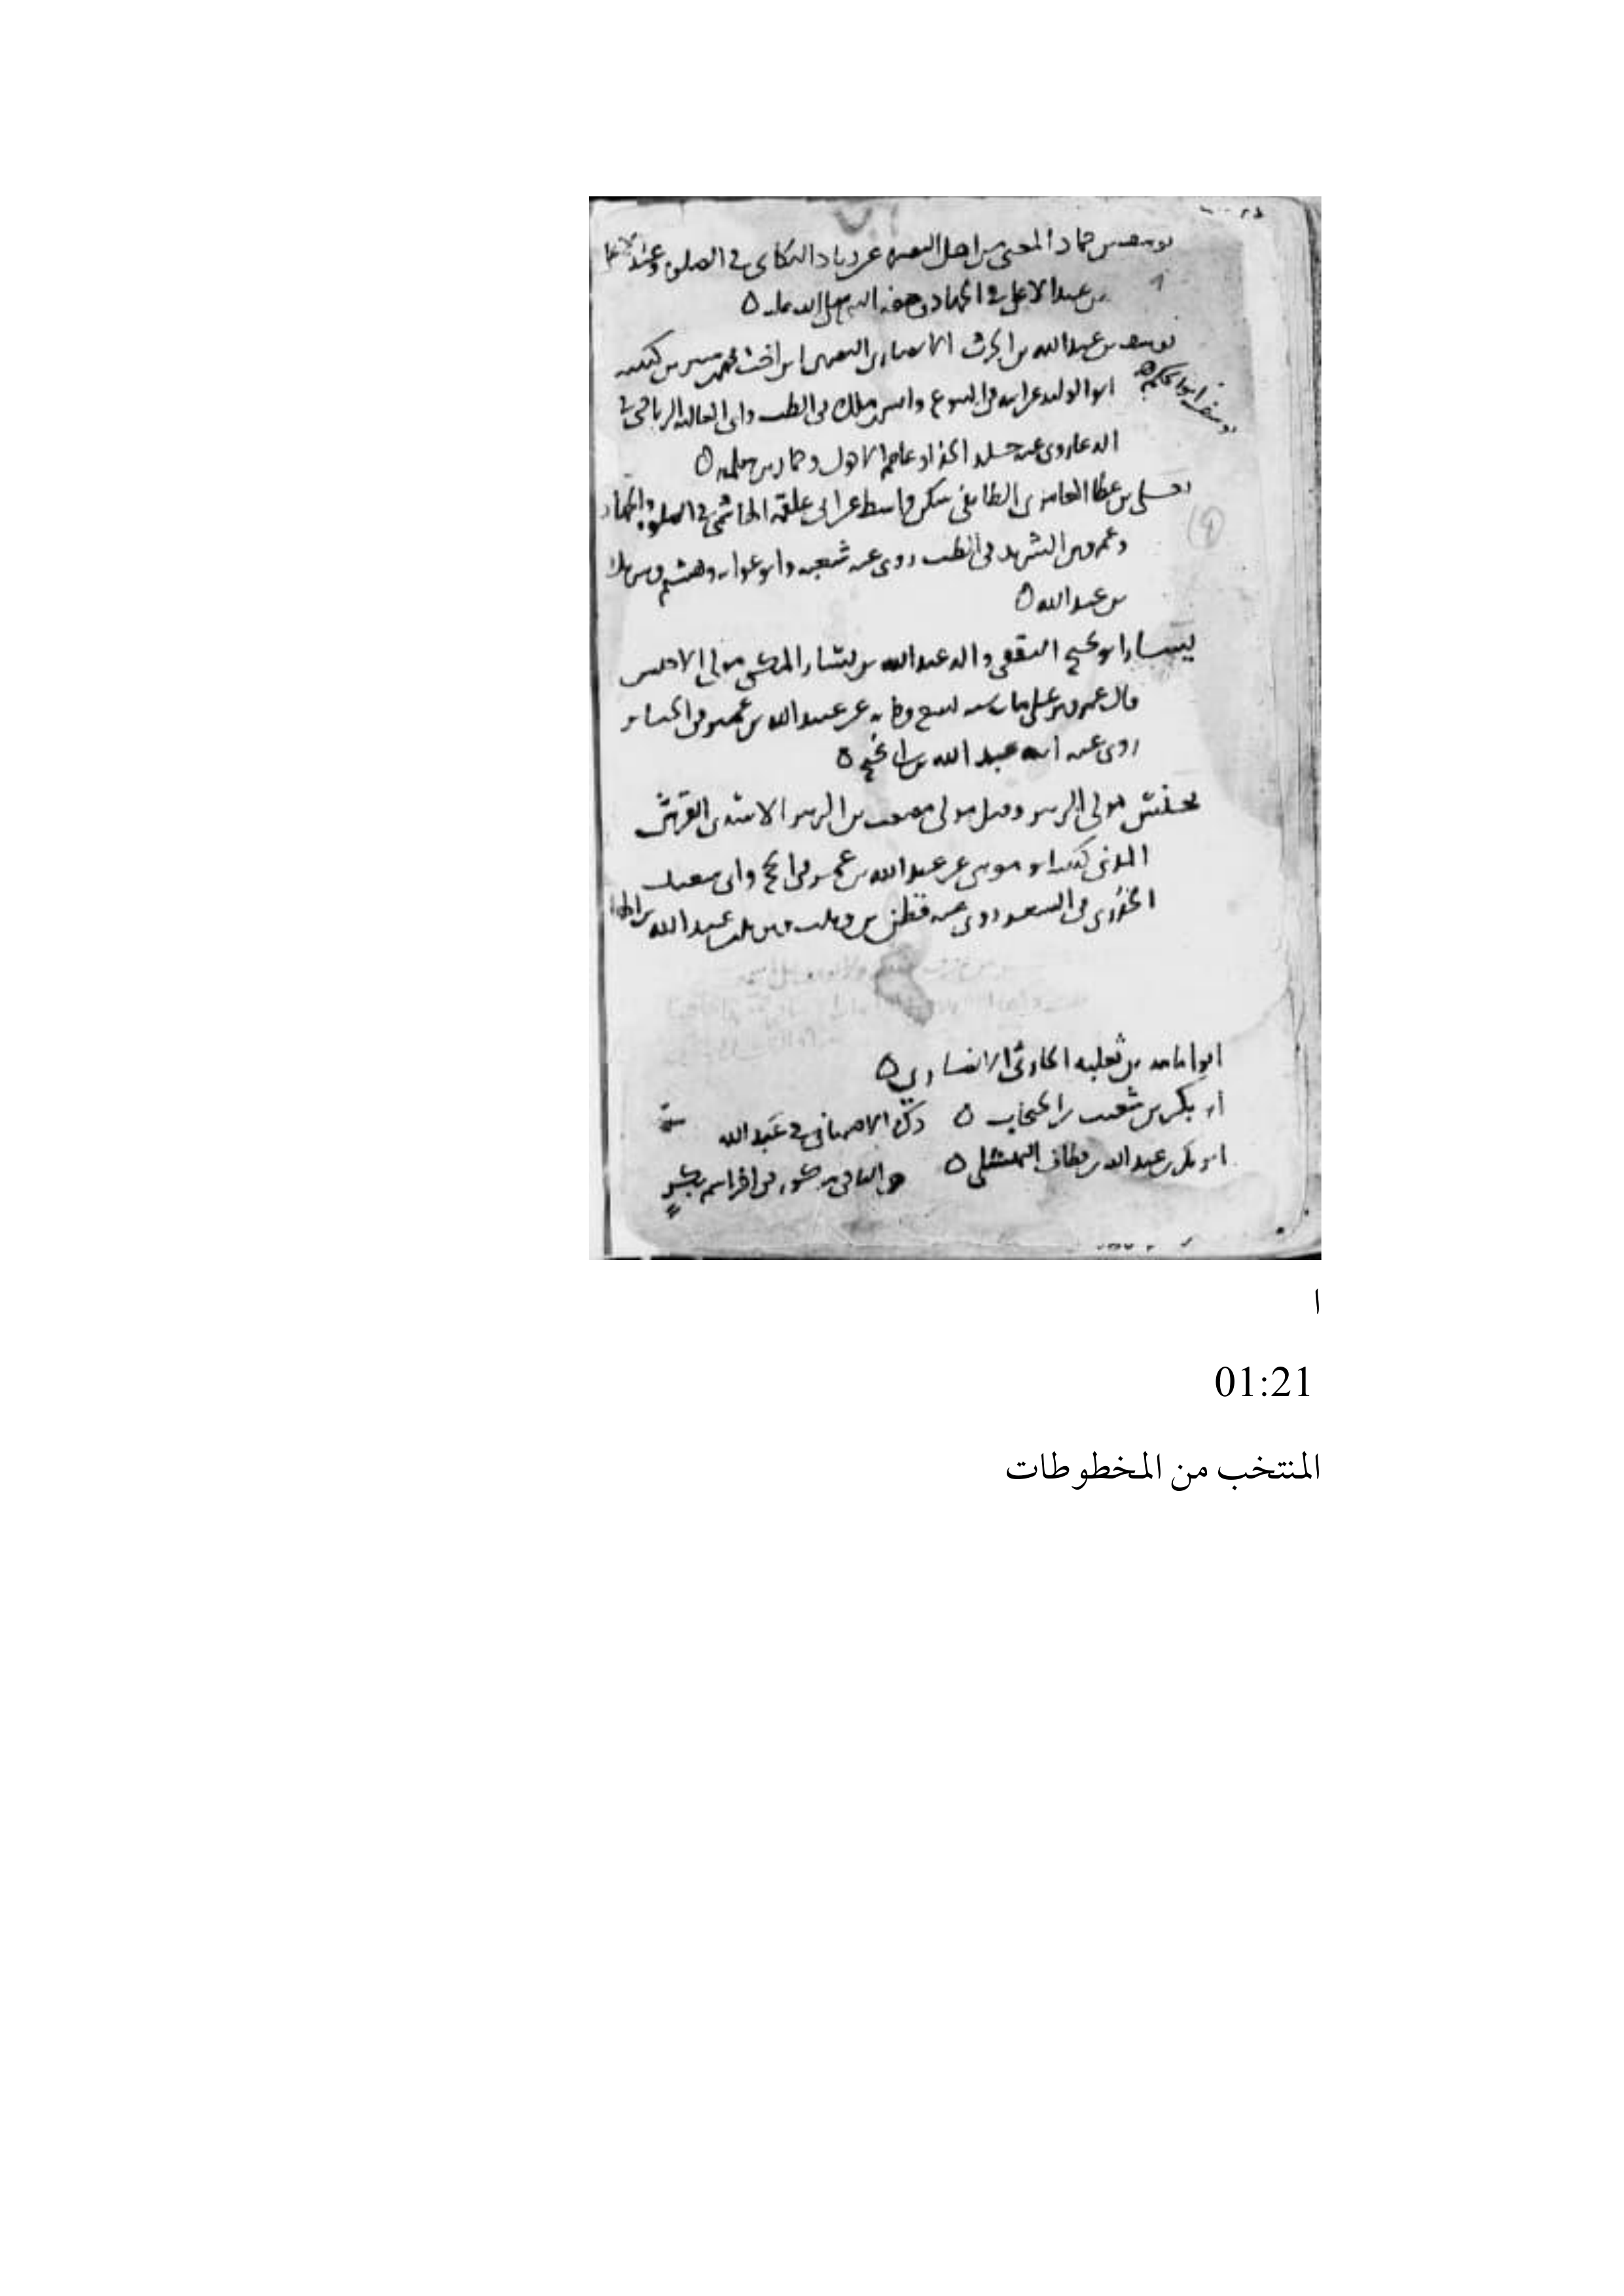 يوسف بن حماد المعنى من اهل البصره عن زياد البكائى فى الصلوة وعبد الاعلى
بن عبد الاعلى فى الجهاد وصفه النبى صلى الله عليه ه
يوسف بن عبد الله بن الحرث الانصارى البصرى ابن اخت محمد بن سيرين كنيته
ابو الوليد عن ابيه فى البيوع وانس بن ملك فى الطب وابى العاليه الرياحى فى
الدعا روى عنه خلد الحذا وعاصم الاحول وحماد بن سلمه ه
يعلى بن عطا العامرى الطايفى سكن واسط عن ابى علقمه الهاشمى فى الصلوة والجهاد
وعمرو بن الشريد فى الطب روى عنه شعبه وابو عوانه وهشيم
بن عبد الله ه
يسار ابو نجيح الثقفى والد عبد الله بن يسار المكى مولى الاخنس
قال عمرو بن على مات سنه تسع ومايه عن عبد الله بن عمير فى
روى عنه ابنه عبد الله بن ابى نجيح ه
يحنش مولى الزبير وقيل مولى مصعب بن الزبير الاسدى القرشى
المدنى كنيته ابو موسى عن عبد الله بن عمر فى الحج وابى سعيد
الخدرى فى الشعر روى عنه قطن بن وهب ويزيد بن عبد الله بن الهاد
ابو امامه بن ثعلبه الحارثى الانصارى ه
ابو بكر بن شعيب بن الحبحاب ه ذكره الاصبهانى فى عبد الله
ابو بكر بن عبد الله بن قطاف النهشلى ه
ا
01:21
المنتخب من المخطوطات